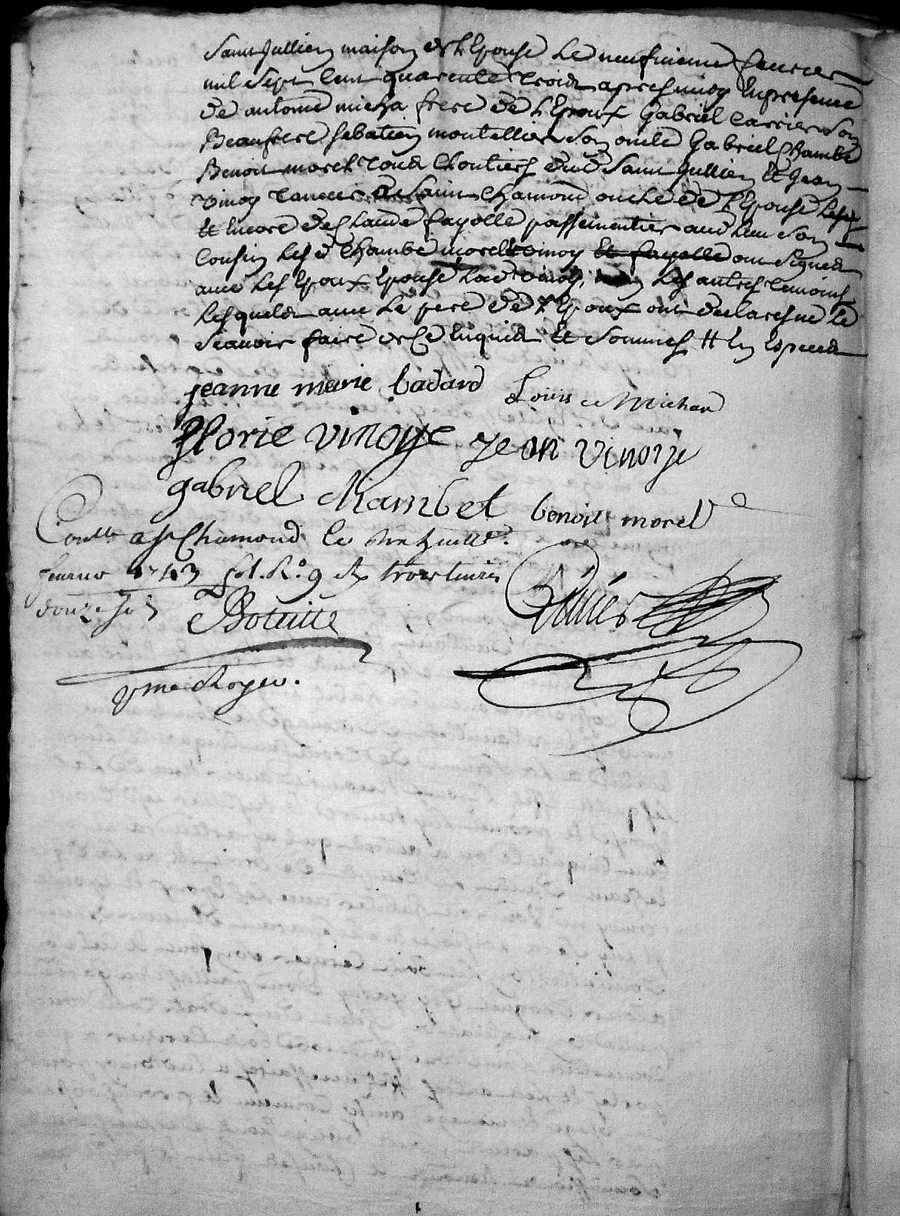 Saint Jullien maison de l'Epouse le neufvieme feurier
mil Sept Cent quarente trois apres midy En presence
de antoine micha frere de l'Epoux Gabriel Carrier Son
Beaufrere Sebatien montellier Son oncle Gabriel Chambe
Benoit morel tous Cloutiers dud Saint Jullien Et Jean
vinoy de Saint Chamond oncle de l'Epouse
Et Encore de Claude fayolle passementier aud lieu Son
Cousin Les d Chambe morel vinoy Et fayolle ont Signes
avec Les Epoux Epouse Lad vinoy, Les autres temoins
Lesquels avec Le pere de l'Epoux ont declares ne le
Scauoir faire de Ce Enquis Et Sommes # En Especes
jeanne marie badard Louis Michard
florie vinoye jean vinoye
gabriel Chambet benoist morel
Contlle a St Chamond le
feurier 1743 fol. Ro 9 Rx trois liures
douze sols